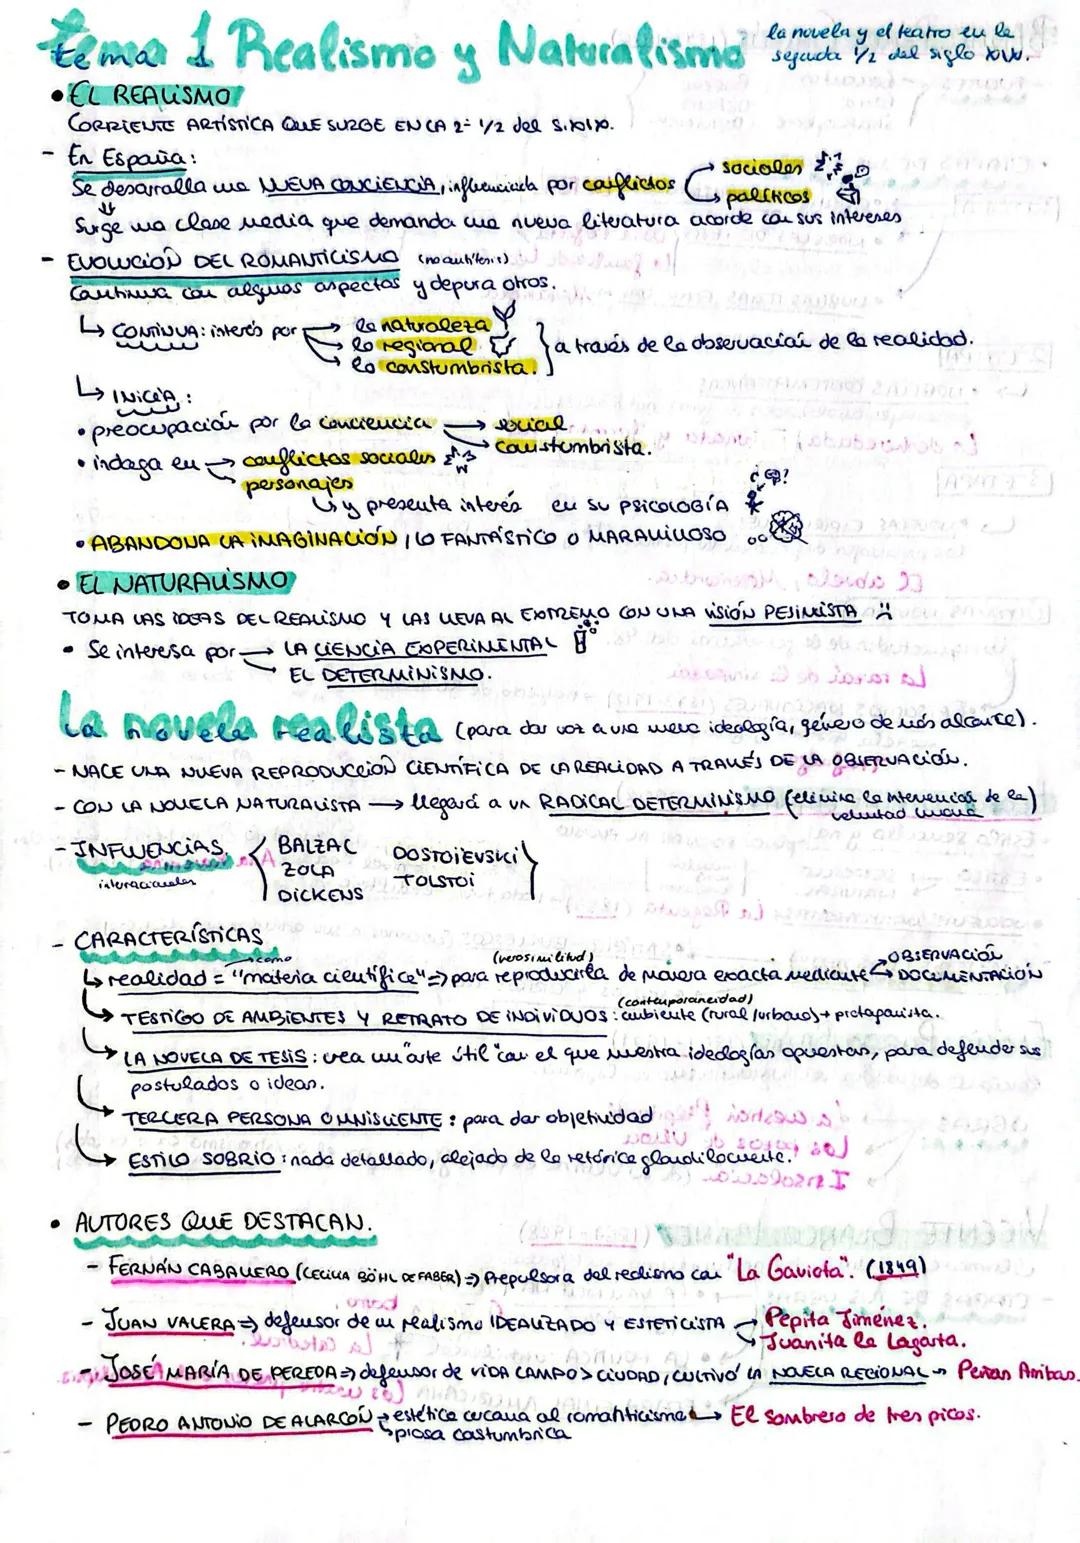 tema 1 Realismo y Naturalismo
la novela y el teatro en la
segunda 1/2 del siglo XIX.
• EL REALISMO
CORRIENTE ARTÍSTICA QUE SURGE EN LA 2ª 1/2 del S.XIX.
- En España:
Se desarrolla una NUEVA CONCIENCIA, influenciada por conflictos → sociales
↳ políticos
⇓
Surge una clase media que demanda una nueva literatura acorde con sus intereses
- EVOLUCIÓN DEL ROMANTICISMO (no antítesis)
Continua con algunos aspectos y depura otros.
↳ CONTINUA: interés por → la naturaleza
→ lo regional
→ lo constumbrista.
} a través de la observación de la realidad.
↳ INICIA:
• preocupación por la conciencia → social
→ constumbrista.
• indaga en → conflictos sociales
→ personajes
↳ y presenta interés en su PSICOLOGÍA
¿?
• ABANDONA LA IMAGINACIÓN, LO FANTÁSTICO O MARAVILLOSO
• EL NATURALISMO
TOMA LAS IDEAS DEL REALISMO Y LAS LLEVA AL EXTREMO CON UNA VISIÓN PESIMISTA
• Se interesa por → LA CIENCIA EXPERIMENTAL
→ EL DETERMINISMO.
La novela realista (para dar voz a una nueva ideología, género de más alcance).
- NACE UNA NUEVA REPRODUCCIÓN CIENTÍFICA DE LA REALIDAD A TRAVÉS DE LA OBSERVACIÓN.
- CON LA NOVELA NATURALISTA → llegará a un RADICAL DETERMINISMO (elimina la intervención de la)
voluntad humana
- INFLUENCIAS
internacionales
BALZAC DOSTOIEVSKI
ZOLA TOLSTOI
DICKENS
- CARACTERÍSTICAS
↳ realidad = como "materia científica" => para reproducirla (verosimilitud) de manera exacta mediante → OBSERVACIÓN
→ DOCUMENTACIÓN
↳ TESTIGO DE AMBIENTES Y RETRATO DE INDIVIDUOS: (contemporaneidad) ambiente (rural/urbano) + protagonista.
↳ LA NOVELA DE TESIS: crea un "arte útil" con el que muestra ideologías opuestas, para defender sus
postulados o ideas.
↳ TERCERA PERSONA OMNISCIENTE: para dar objetividad
↳ ESTILO SOBRIO: nada detallado, alejado de la retórica glandilocuente.
• AUTORES QUE DESTACAN.
- FERNÁN CABALLERO (CECILIA BÖHL DE FABER) => Propulsora del realismo con "La Gaviota". (1849)
- JUAN VALERA => defensor de un realismo IDEALIZADO Y ESTETICISTA → Pepita Jiménez.
→ Juanita la Lagarta.
- JOSÉ MARÍA DE PEREDA => defensor de VIDA CAMPO > CIUDAD, CULTIVÓ LA NOVELA REGIONAL → Peñas Arribas.
- PEDRO ANTONIO DE ALARCÓN → estética cercana al romanticismo → El sombrero de tres picos.
↳ prosa costumbrica